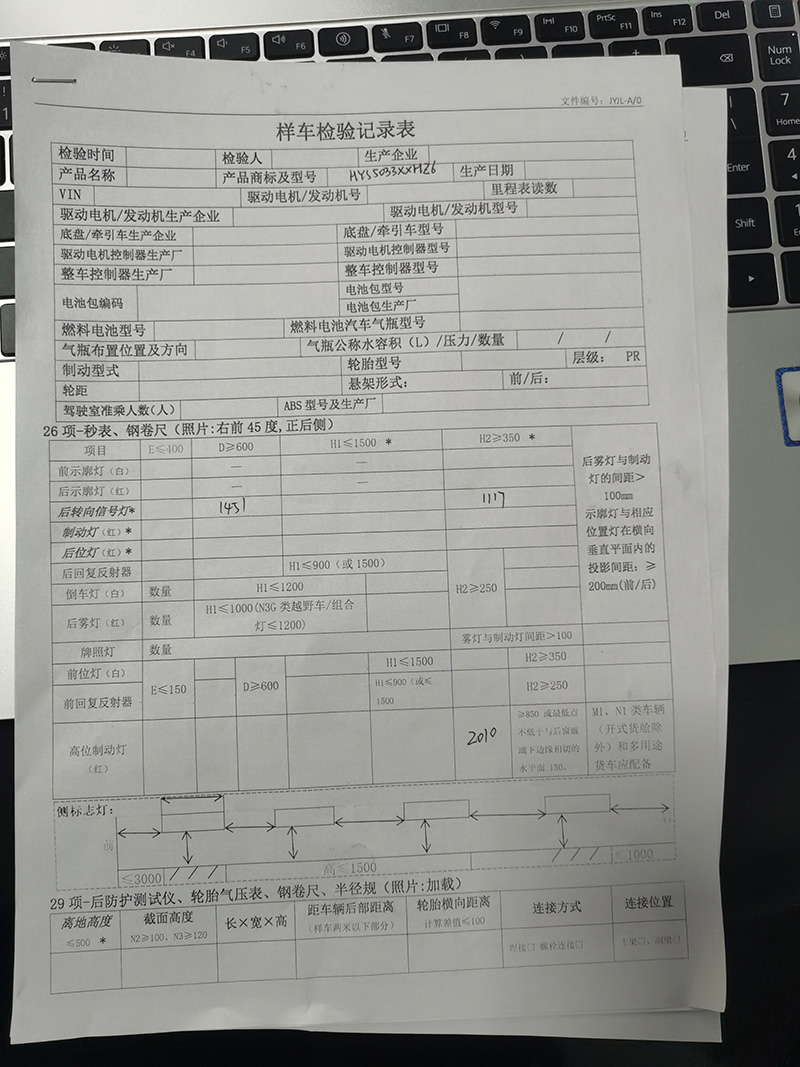 文件编号：JYJL-A/0
样车检验记录表
检验时间 检验人 生产企业
产品名称 产品商标及型号 HYS5033XXHZ6 生产日期
VIN 驱动电机/发动机号 里程表读数
驱动电机/发动机生产企业 驱动电机/发动机型号
底盘/牵引车生产企业 底盘/牵引车型号
驱动电机控制器生产厂 驱动电机控制器型号
整车控制器生产厂 整车控制器型号
电池包编码 电池包型号
电池包生产厂
燃料电池型号 燃料电池汽车气瓶型号
气瓶布置位置及方向 气瓶公称水容积（L）/压力/数量 / /
制动型式 轮胎型号 层级： PR
轮距 悬架形式： 前/后：
驾驶室准乘人数(人) ABS 型号及生产厂
26 项-秒表、钢卷尺（照片:右前 45 度,正后侧）
项目 E≤400 D≥600 H1≤1500 * H2≥350 * 后雾灯与制动灯的间距>100mm
前示廓灯（白） — —
后示廓灯（红） — —
后转向信号灯* 1451 1117 示廓灯与相应位置灯在横向垂直平面内的投影间距：≥200mm(前/后)
制动灯（红）*
后位灯（红）*
后回复反射器 H1≤900（或 1500）
倒车灯（白） 数量 H1≤1200 H2≥250
后雾灯（红） 数量 H1≤1000(N3G 类越野车/组合灯≤1200)
牌照灯 数量 雾灯与制动灯间距>100
前位灯（白） E≤150 D≥600 H1≤1500 H2≥350
前回复反射器 H1≤900（或≤1500 H2≥250
高位制动灯（红） 2010 ≥850 或最低点不低于与后窗玻璃下边缘相切的水平面 150。 M1、N1 类车辆（开式货舱除外）和多用途货车应配备
侧标志灯：
前
≤3000 / / / 高≤1500 / / / ≤1000
29 项-后防护测试仪、轮胎气压表、钢卷尺、半径规（照片:加载）
离地高度≤500 * 截面高度 N2≥100、N3≥120 长×宽×高 距车辆后部距离（样车两米以下部分） 轮胎横向距离 计算差值≤100 连接方式 连接位置
焊接□ 螺栓连接□ 主梁□、副梁□